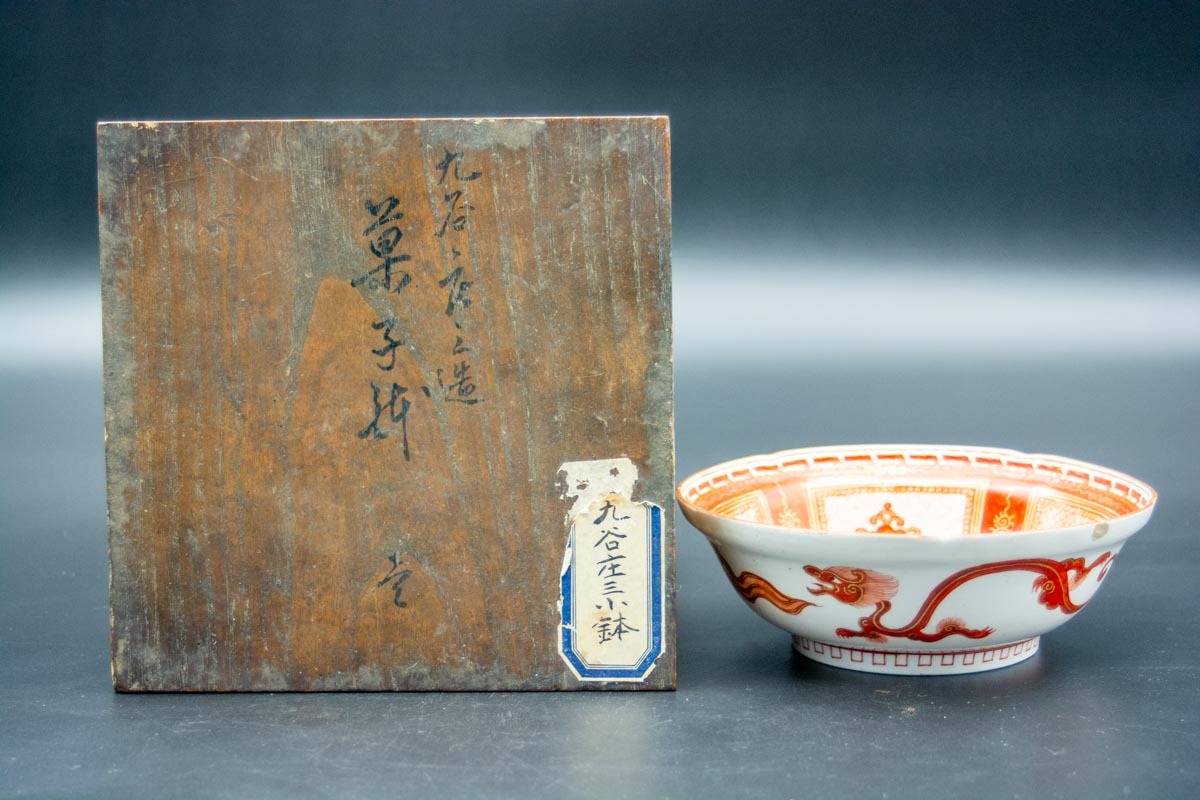 九谷庄三造
菓子鉢
壱
九谷庄三小鉢